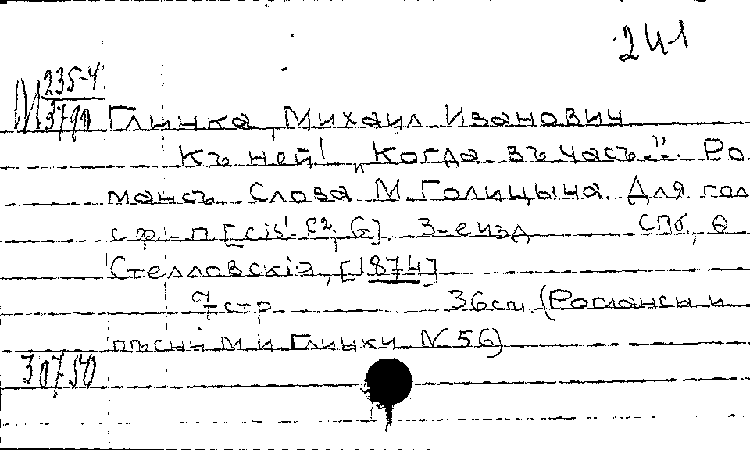 24-1
М 235-4
379
Глинка, Михаил Иванович
Къ ней! „Когда въ часъ..." Ро
мансъ. Слова М. Голицына. Для гол
с ф-п [cis¹-e², G]. 3-е изд СПб, Ѳ
Стелловскiй, [1874]
7 стр 36 см (Романсы и
пѣсни М И Глинки N 56)
30750